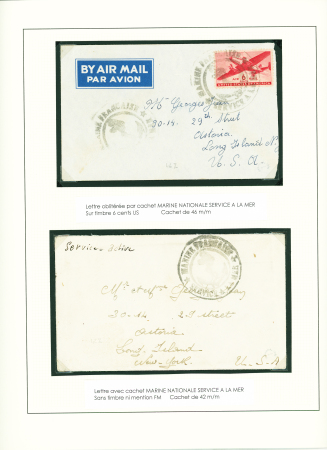 BY AIR MAIL
PAR AVION
6
UNITED STATES OF AMERICA
20-14. 29th Street
Astoria
Long Island N.
U. S. A.
Lettre oblitérée par cachet MARINE NATIONALE SERVICE A LA MER
Sur timbre 6 cents US Cachet de 46 m/m
MARINE FRANÇAISE
20-14 29 street
Astoria
Long Island
New-York. U. S. A
Lettre avec cachet MARINE NATIONALE SERVICE A LA MER
Sans timbre ni mention FM Cachet de 42 m/m